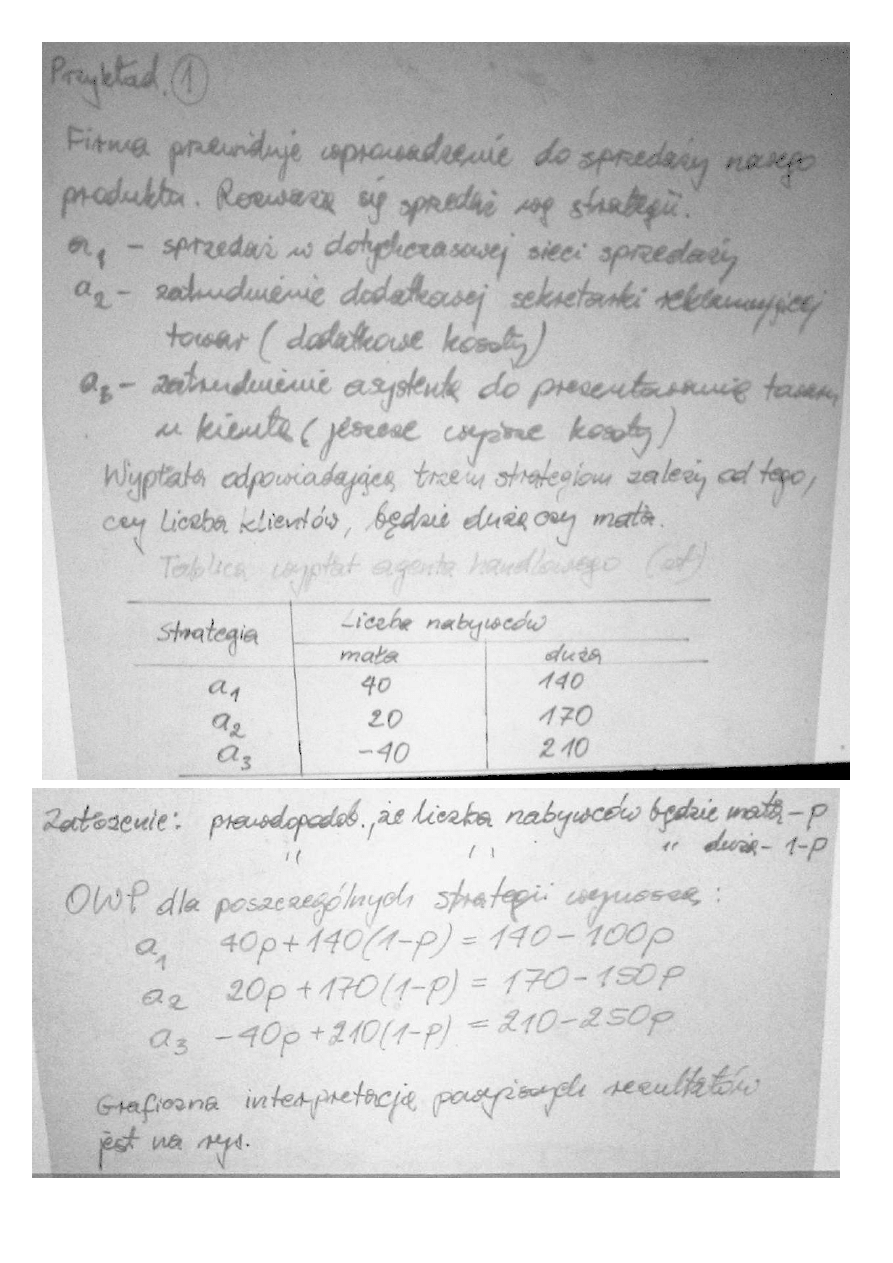 Przykład. 1
Firma przewiduje wprowadzenie do sprzedaży nowego
produktu. Rozważa się sprzedaż wg strategii.
a1 – sprzedaż w dotychczasowej sieci sprzedaży
a2 – zatrudnienie dodatkowej sekretarki reklamującej
towar ( dodatkowe koszty)
a3 – zatrudnienie asystenta do prezentowania towaru
u kienta ( jeszcze wyższe koszty)
Wypłata odpowiadająca trzem strategiom zależy od tego,
czy liczba klientów, będzie duża czy mała.
Tablica wypłat agenta handlowego (zł)
Strategia Liczba nabywców
mała duża
a1 40 140
a2 20 170
a3 –40 210
Założenie: prawdopodob., że liczba nabywców będzie mała – p
" " " duża – 1-p
OWP dla poszczególnych strategii wynoszą:
a1 40p + 140(1-p) = 140 – 100p
a2 20p + 170(1-p) = 170 – 150p
a3 –40p + 210(1-p) = 210 – 250p
Graficzna interpretacja powyższych rezultatów
jest na rys.